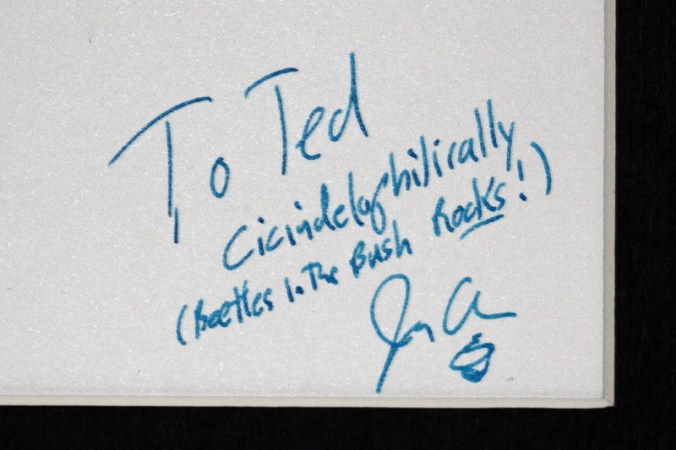 To Ted
Cicindelophilically
(Beetles In The Bush Rocks!)